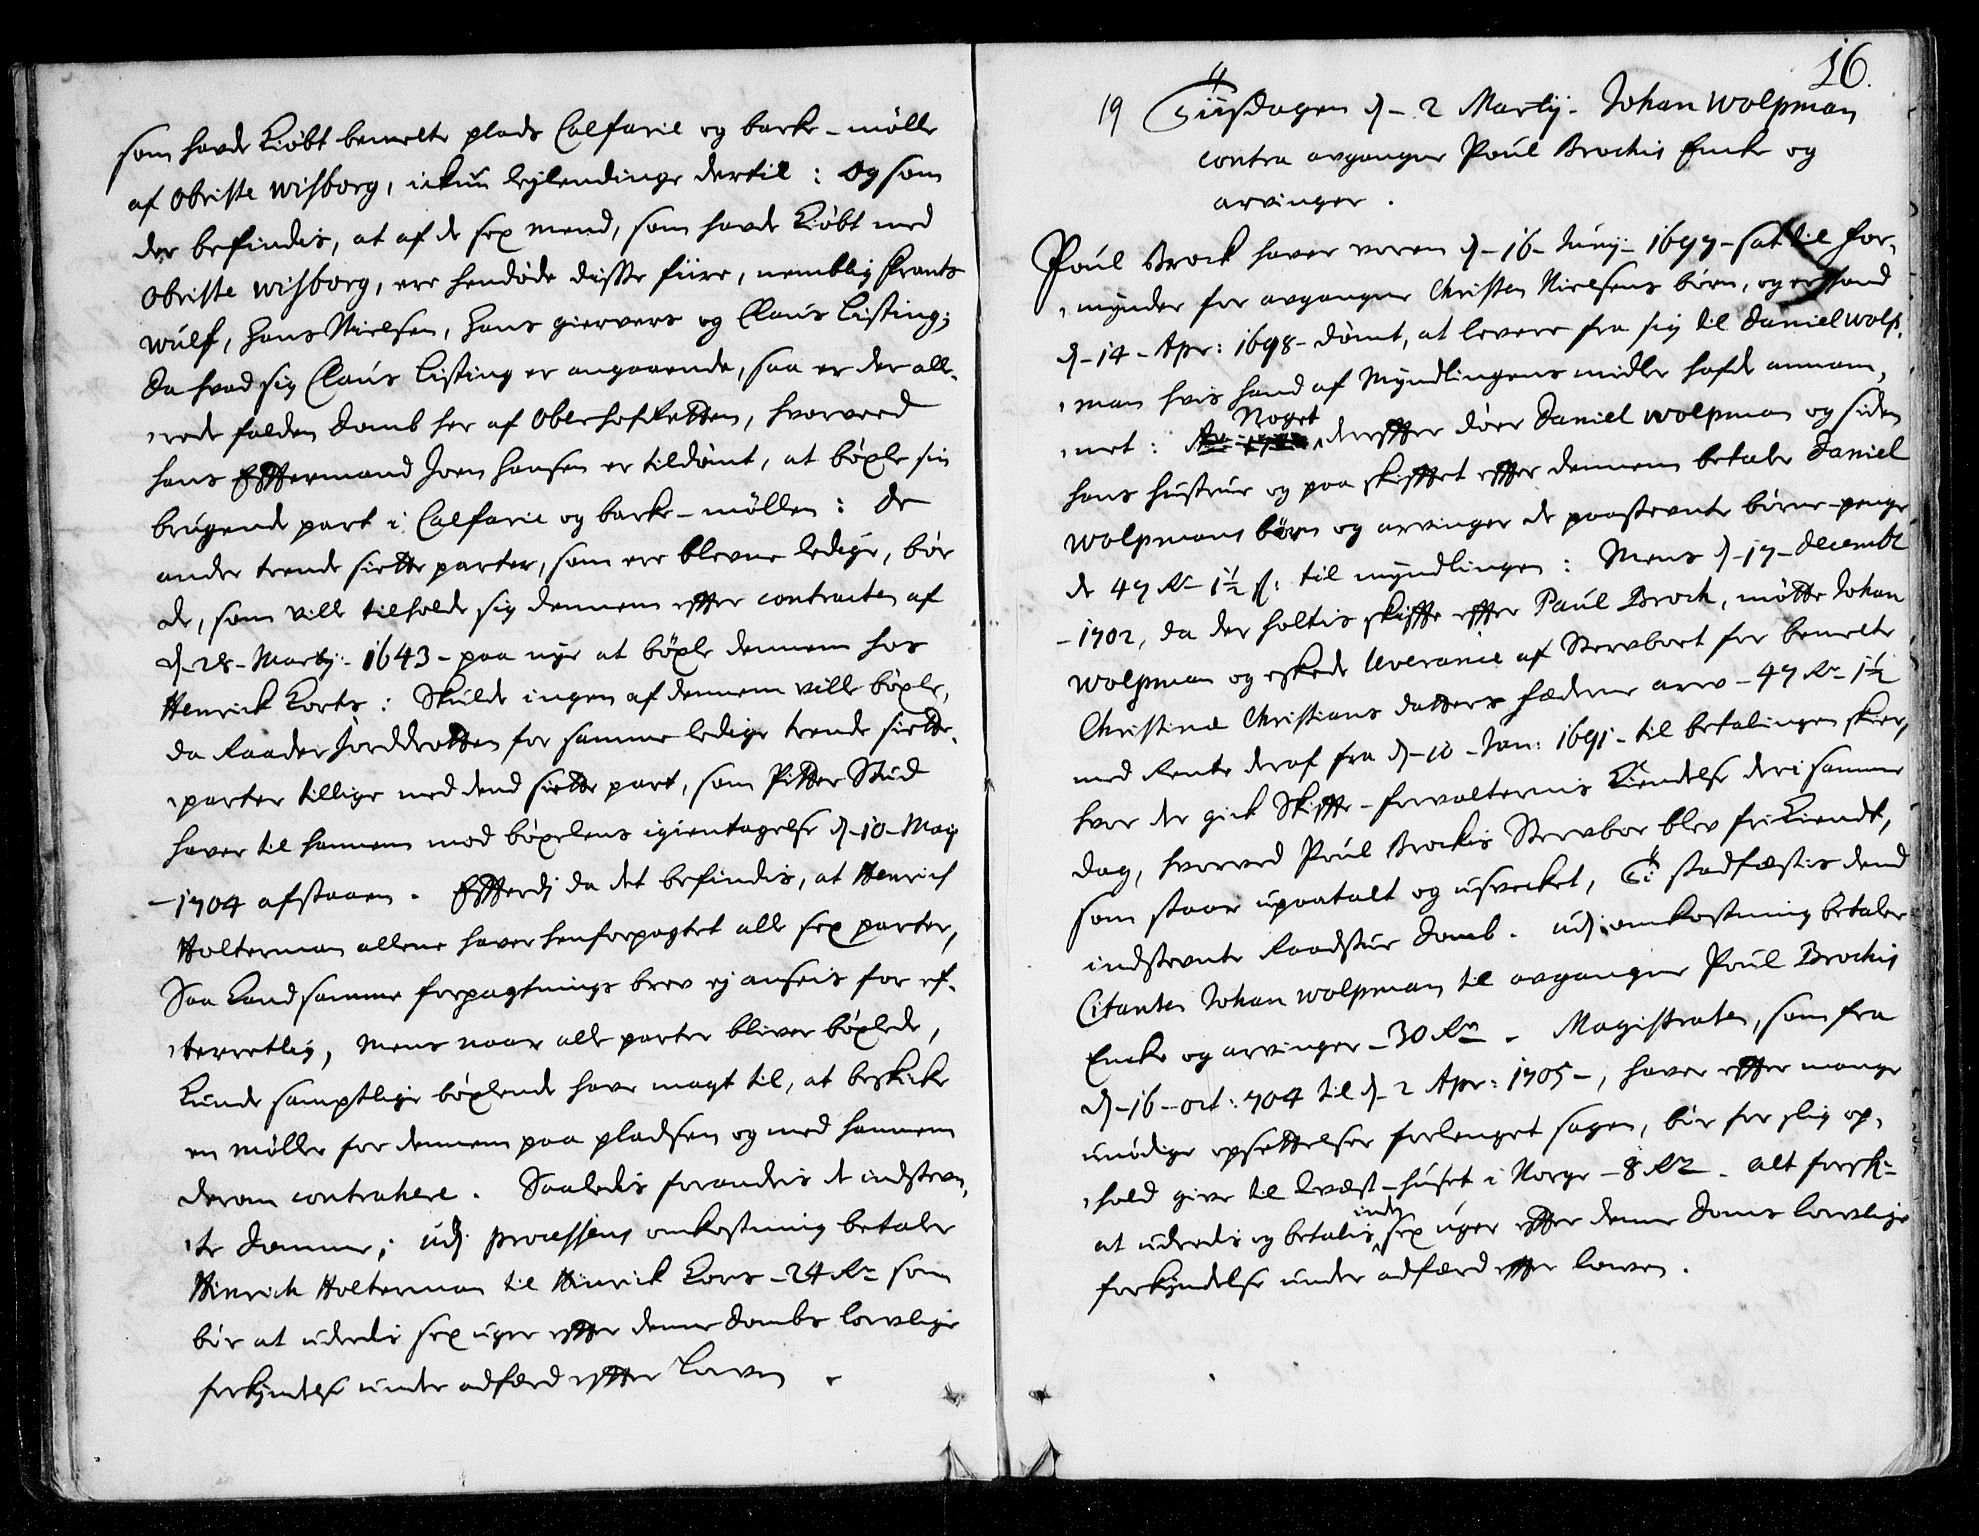 som havde Kiøbt bemelte plads Calfarie og barke-mølle
af Obriste Wisborg, ickun leylendinge dertil: Og som
der befindis, at af de sex mend, som havde Kiøbt med
Obriste Wisborg, ere hendøde disse fiire, nemblig Frants
Wulf, Hans Nielsen, Hans gierners og Claus Listing;
Da hvad sig Claus Listing er angaaende, saa er der all,
,rede falden Domb her af Oberhofretten, hvorved
hans Efftermand Joen Hansen er tildømt, at bøxle sin
brugende part i Calfarie og barke-møllen: De
andre trende siette parter, som ere blevne ledige, bør
de, som ville tilholde sig dennem effter contracten af
d-28-Martij-1643-paa nye at bøxle dennem hos
Henrick Korts: Skulde ingen af dennem ville bøxle,
da Raader Jorddrotten for samme ledige trende siette,
,parter tillige med dend siette part, som Pitter Stud
haver til hannem mod bøxelens igientagelse d-10-Maij
-1704 afstaaen. Effterdj da det befindis, at Henrich
Holterman allene haver henforpagtet alle sex parter,
Saa Kand samme forpagtnings brev ej ansees for ef,
,terretlig, Mens naar alle parter bliver bøxlede,
Kunde samptlige bøxlende have magt til, at beskicke
en møller for dennem paa pladsen og med hannem
derom contrahere. Saaledis forandris de indstevn,
,te Domme; udj processens omkostning betaler
Hinrich Holterman til Hinrick Kors-24 Rdr som
bør at uderedis sex uger effter denne Dombs lovlige
forkyndelse under adfærd effter Loven.
16.
19 Tiisdagen d-2 Martij-Johan Wolpman
contra avgangne Poul Brockis Encke og
arvinger.
Poul Brock haver veren d-16-Junij-1697-sat til for,
,mynder for avgangne Christen Nielsens børn, og er hand
d-14-Apr: 1698-dømt, at levere fra sig til Daniel Wolp,
,man hvis hand af Myndlingens midler hafde annam,
,met: Noget dereffter døer Daniel Wolpman og siden
hans hustrue og paa skifftet effter dennem betaler Daniel
Wolpmans børn og arvinger de paastevnte børne-penge
de 47 Rdr 1½ s: til myndlingen: Mens d-17-Decembr
-1702, da der holtis skiffte effter Paul Brock, møtte Johan
Wolpman og eskede leverance af Stervboet for bemelte
Christine Christians datters fæderne arv-47 Rdr 1½
med Rente deraf fra d-10-Jan: 1691-til betalingen skeer,
hvor der gick Skiffte-forvalternis Kiendelse der i samme
dag, hvorved Poul Brockis Stervboe blev friKiendt,
som staar upaatalt og usvecket, Ti stadfæstis dend
indstevnte Raadstue Domb. udj omkostning betaler
Citanten Johan Wolpman til avgangne Poul Brockis
Encke og arvinger-30 Rdr. Magistraten, som fra
d-16-oct: 704 til d-2 Apr: 1705-, haver effter mange
unødige opsettelser forlenget sagen, bør for slig op,
,hold give til Qvæst-huset i Norge-8 Rdr. alt forsk:
at uderedis og betalis inden sex uger effter denne Doms lovlige
forkyndelse under adfærd effter loven.